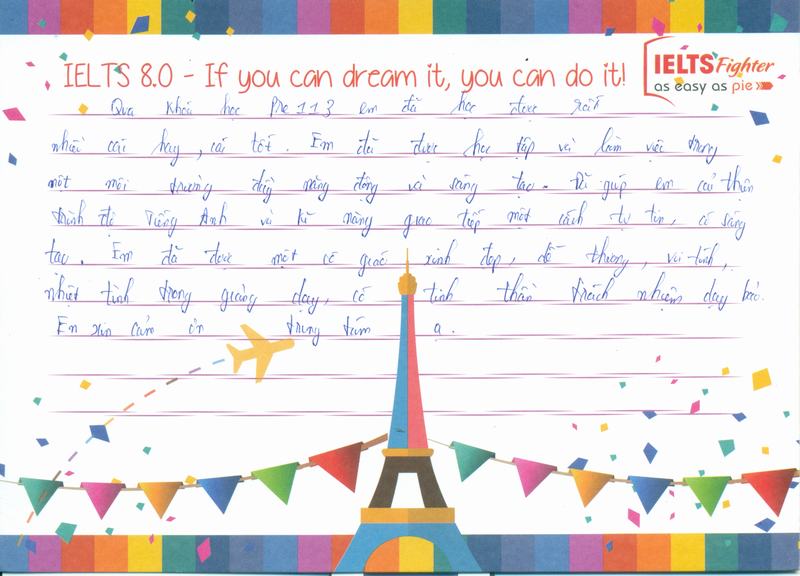 IELTS 8.0 - If you can dream it, you can do it!
IELTS Fighter
as easy as pie
Qua khóa học Pre 113 em đã học được rất
nhiều cái hay, cái tốt. Em đã được học tập và làm việc trong
một môi trường đầy năng động và sáng tạo. Đã giúp em cải thiện
trình độ Tiếng Anh và kĩ năng giao tiếp một cách tự tin, có sáng
tạo. Em đã được một cô giáo xinh đẹp, dễ thương, vui tính,
nhiệt tình trong giảng dạy, có tinh thần trách nhiệm dạy bảo.
Em xin cảm ơn trung tâm ạ.